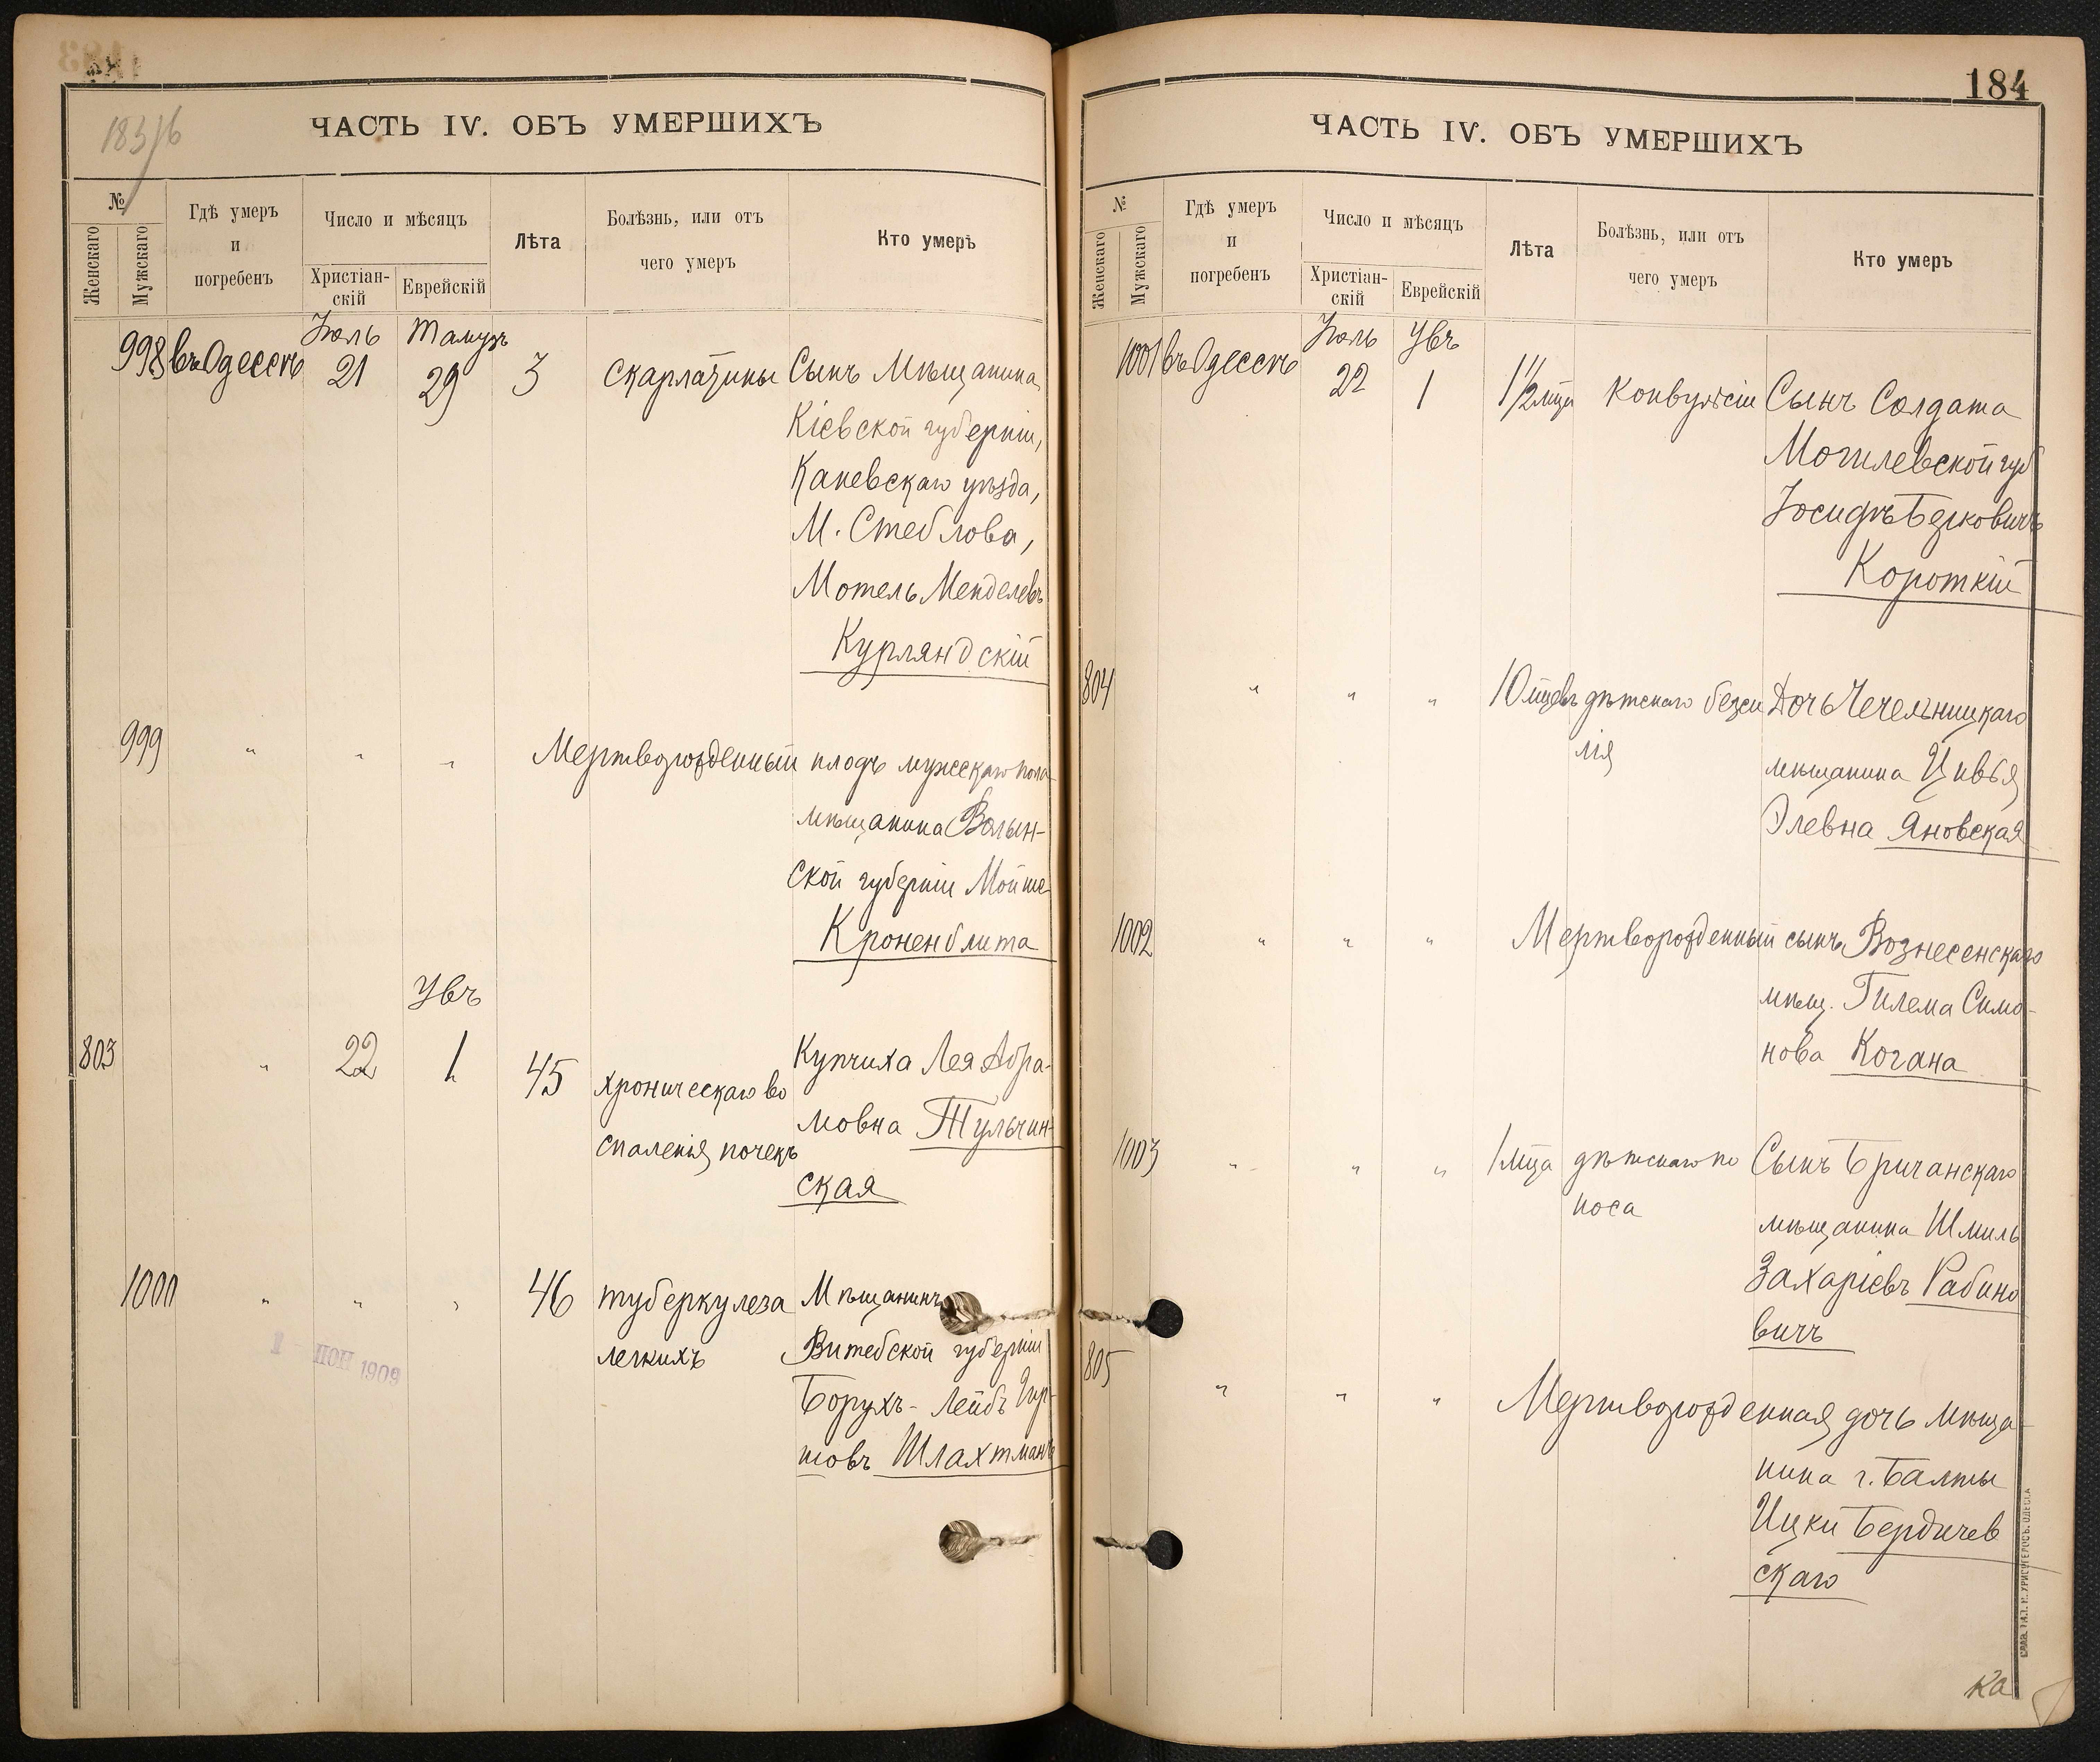 183/б
ЧАСТЬ IV. ОБЪ УМЕРШИХЪ
№
Женскаго
Мужскаго
Гдѣ умеръ
и
погребенъ
Число и мѣсяцъ
Христіан-
скій
Еврейскій
Лѣта
Болѣзнь, или отъ
чего умеръ
Кто умеръ
Іюль Тамузъ
998 въ Одессѣ 21 29 3 скарлатины Сынъ Мѣщанина
Кіевской губерніи,
Каневскаго уѣзда,
М. Стеблова,
Мотель Менделевъ
Курляндскій
999 " " " Мертворожденный плодъ мужескаго пола
мѣщанина Волын-
ской губерніи Мойше
Кроненблита
Увъ
803 " 22 1 45 хроническаго во Купчиха Лея Абра-
спаленія почекъ мовна Тульчин-
ская
1000 " " " 46 туберкулеза Мѣщанинъ
легкихъ Витебской губерніи
Борухъ-Лейбъ Гир-
шовъ Шлахтманъ
1 - ІЮН 1909
184
ЧАСТЬ IV. ОБЪ УМЕРШИХЪ
№
Женскаго
Мужскаго
Гдѣ умеръ
и
погребенъ
Число и мѣсяцъ
Христіан-
скій
Еврейскій
Лѣта
Болѣзнь, или отъ
чего умеръ
Кто умеръ
Іюль Увъ
1001 въ Одессѣ 22 1 1 1/2 мца Конвульсіи Сынъ Солдата
Могилевской губ
Іосифъ Берковичъ
Короткій
804 " " " 10 мцевъ дѣтскаго безси Дочь Чечельницкаго
лія мѣщанина Цивья
Элевна Яновская
1002 " " " Мертворожденный сынъ Вознесенскаго
мѣщ. Гилема Симо-
нова Когана
1003 " " " 1 мца дѣтскаго по Сынъ Бричанскаго
носа мѣщанина Шмиль
Захаріевъ Рабино
вичъ
805 " " " Мертворожденная дочь мѣща-
нина г. Балты
Ицки Бердичев
скаго
Ка